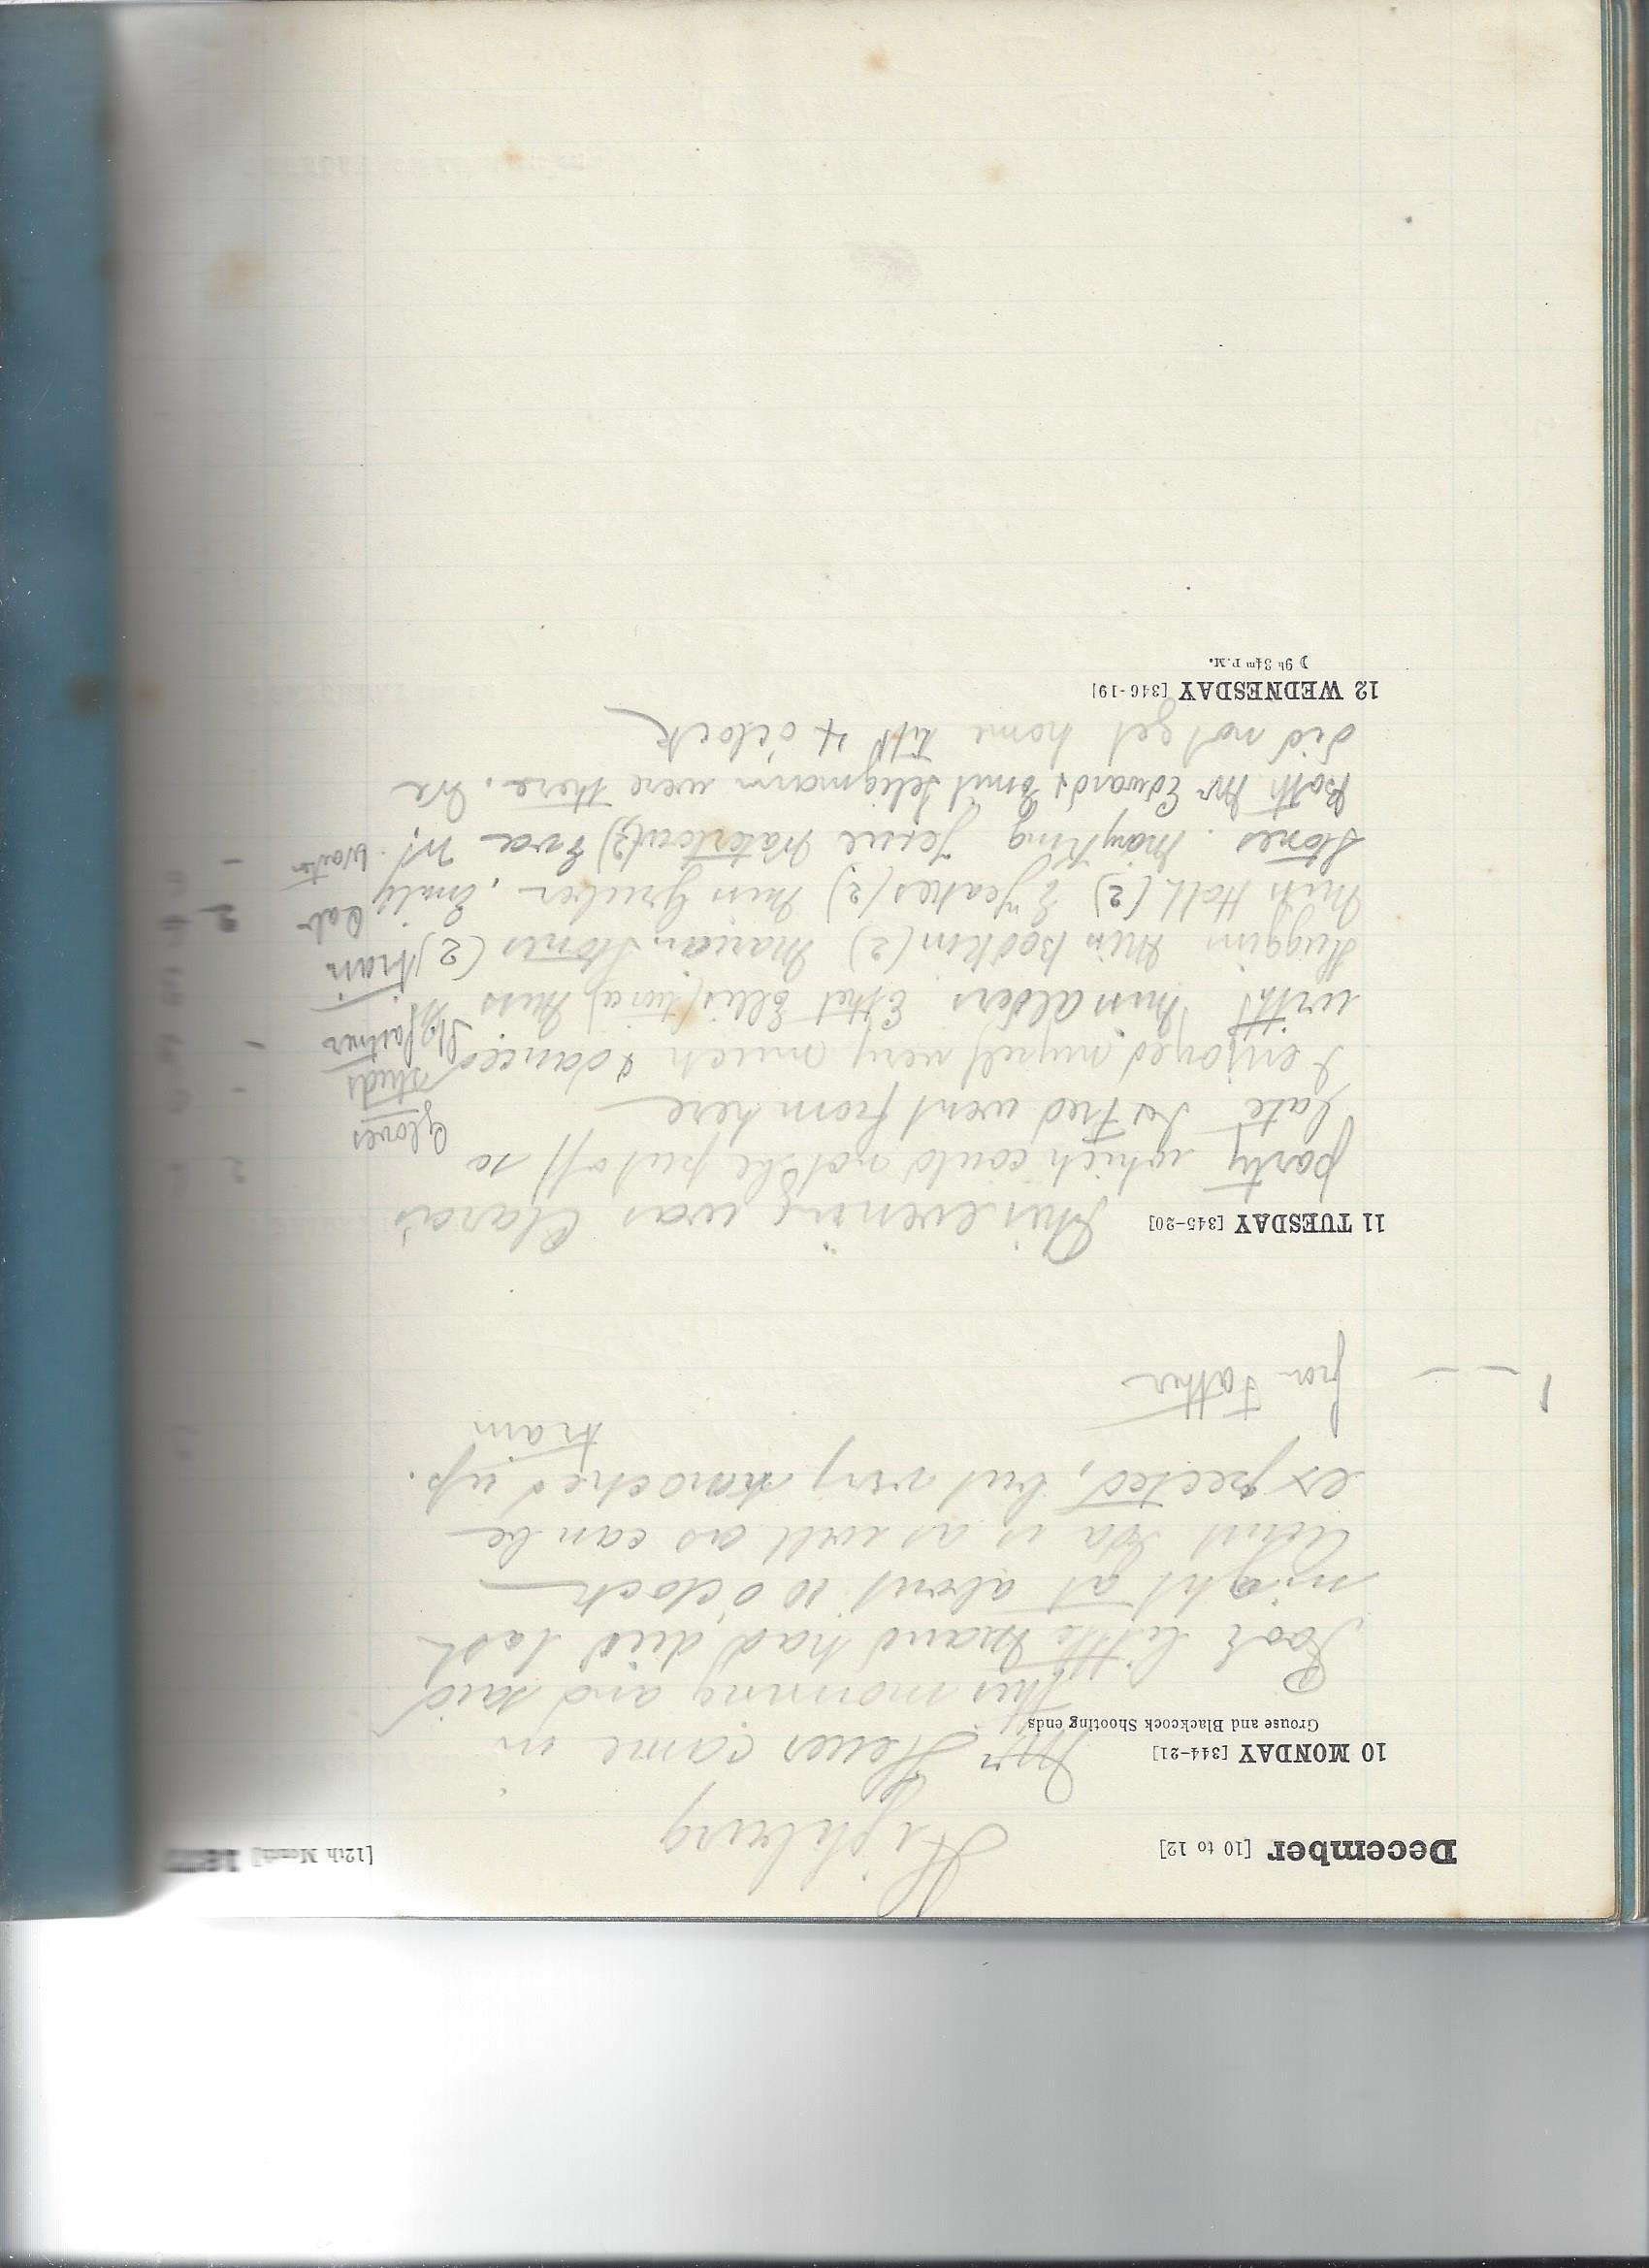 December [10 to 12] Highbury [12th Month] 187
10 MONDAY [344-21] Mr Heues came in
Grouse and Blackcock Shooting ends
this morning and said
Poor little Maud had died last
night at about 10 o'clock
Aunt Ida is as well as can be
expected, but very knocked up.
train
1 — — from Father
11 TUESDAY [345-20] This evening was Clara's
party which could not be put off so
late I & Fred went from here
Gloves
studs
I enjoyed myself very much & danced
with Miss Alders Ethel Ellis (twice) Miss
Huggins Miss Bodkin (2) Marian Stones (2) train
Miss Holt (2) E Yeates (2) Miss Gruber. Emily Cab 2
Stones. May King Jessie Waterlow (2) Eva W. Waiter
Both Mr Edward & Emil Seligmann were there. We
did not get home till 4 o'clock
12 WEDNESDAY [346-19]
☽ 9h 34m P.M.